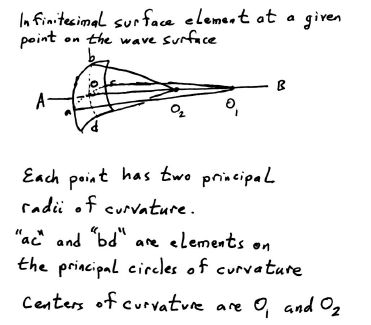 Infinitesimal surface element at a given
point on the wave surface
b
O
c
A
B
a
O₂
O₁
d
Each point has two principal
radii of curvature.
"ac" and "bd" are elements on
the principal circles of curvature
Centers of curvature are O₁ and O₂